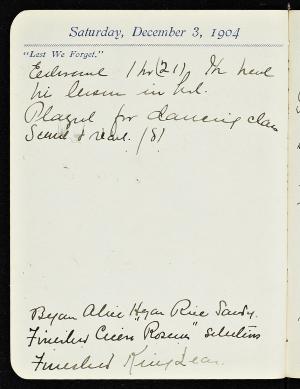 Saturday, December 3, 1904
"Lest We Forget."
1 hr (21). 1 hr
his lesson in
Played for dancing class
Scaled + read. (8)
Began Alice Hegan Rice Sandy.
Finished Cicero "Roscius" selections
Finished King Lear.